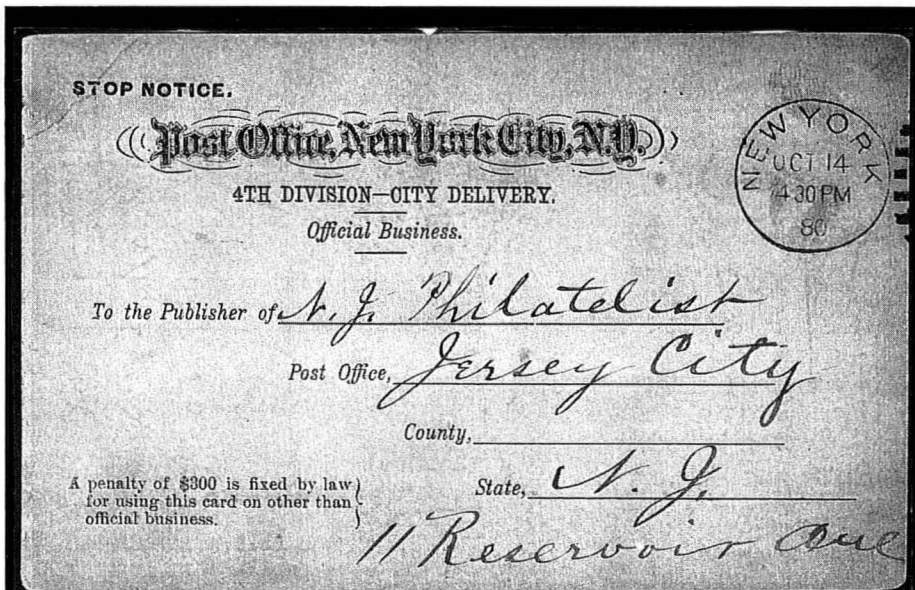 STOP NOTICE.
Post Office, New York City, N.Y.
4TH DIVISION—CITY DELIVERY.
Official Business.
NEW YORK
OCT 14
4 30 PM
80
To the Publisher of N. J. Philatelist
Post Office, Jersey City
County,
State, N. J.
11 Reservoir Ave
A penalty of $300 is fixed by law
for using this card on other than
official business.